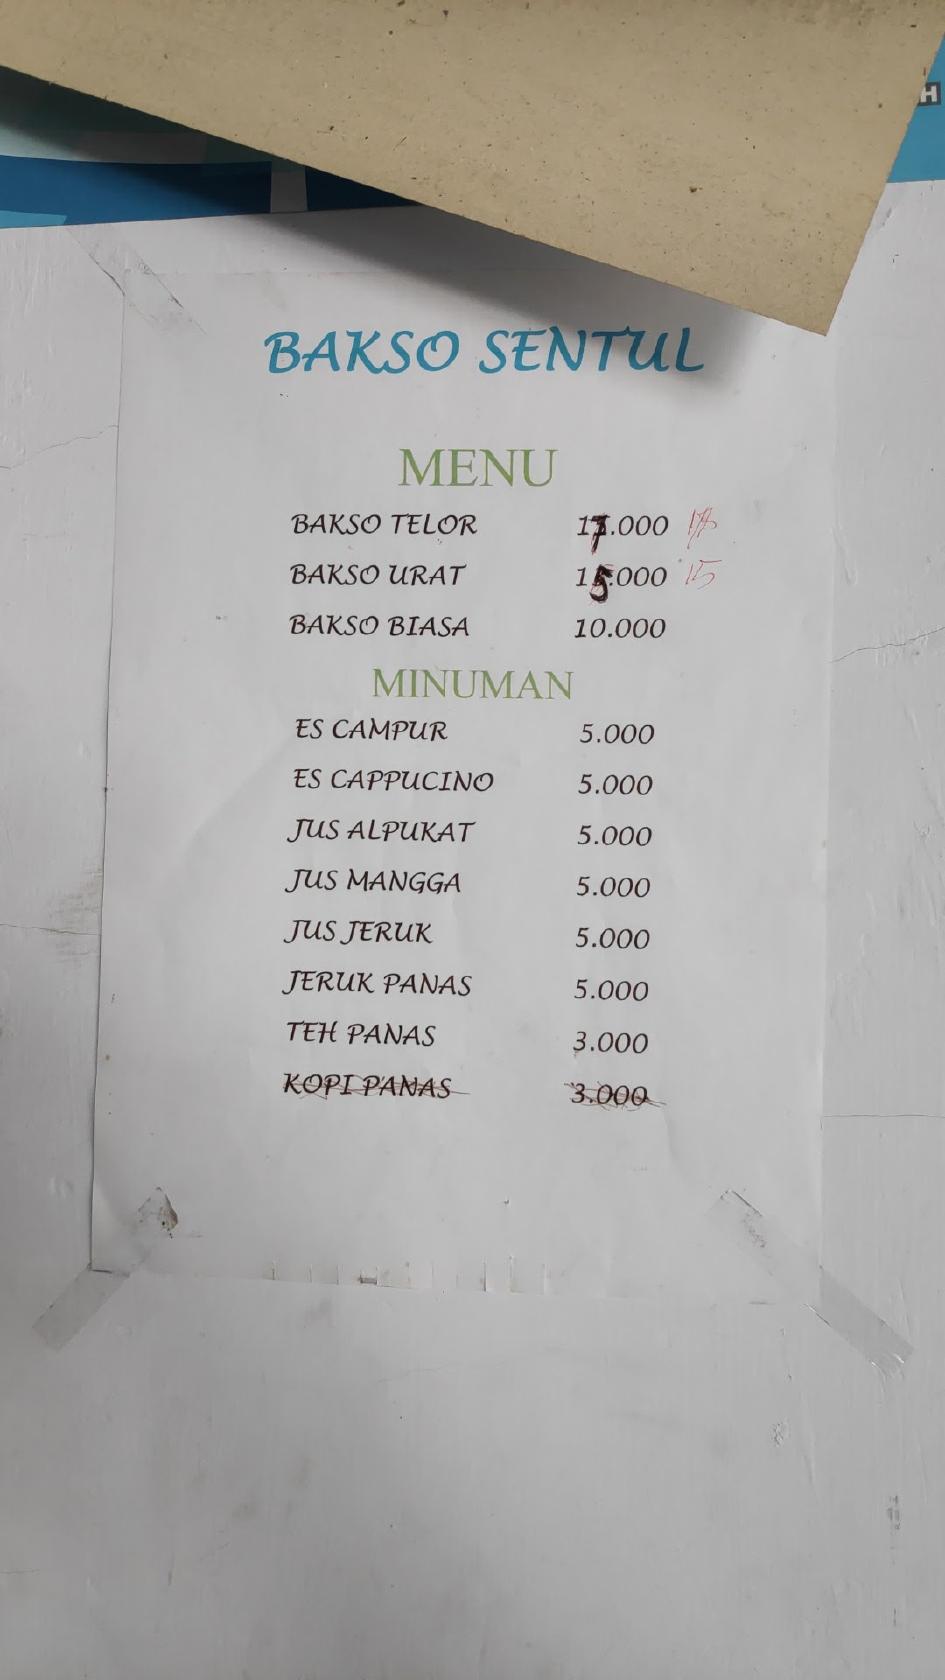 H
BAKSO SENTUL
MENU
BAKSO TELOR 17.000
BAKSO URAT 15.000 15
BAKSO BIASA 10.000
MINUMAN
ES CAMPUR 5.000
ES CAPPUCINO 5.000
JUS ALPUKAT 5.000
JUS MANGGA 5.000
JUS JERUK 5.000
JERUK PANAS 5.000
TEH PANAS 3.000
KOPI PANAS 3.000